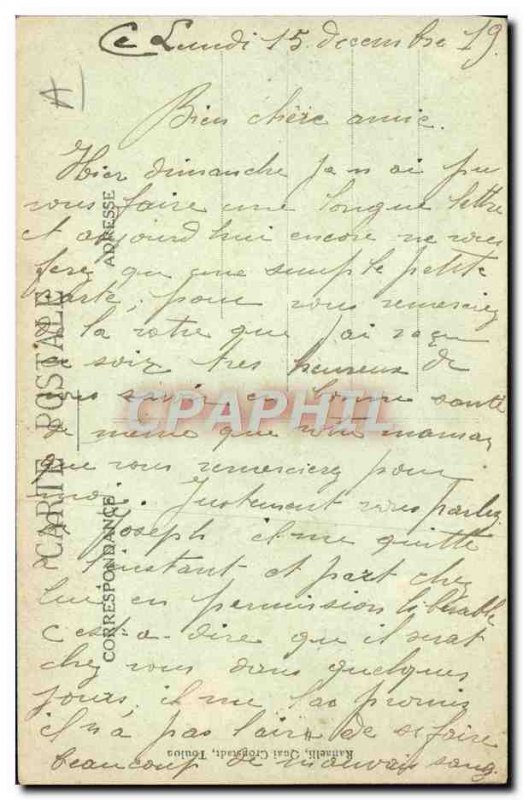 Lundi 15 decembre 19.
A
Bien chère amie.
Hier dimanche je n ai pu
vous faire une longue lettre
et aujourd hui encore ne vous
fere qu une simple petite
carte, pour vous remercier
de la votre que j ai reçu
ce soir tres heureux de
vous savoir en bonne santé
de meme que votre maman
que vous remercierez pour
moi. Justement vous parlez
de Joseph il me quitte
l instant et part chez
lui en permission libérable
c est-a-dire que il serat
chez vous dans quelques
jours, il me la promis
il n a pas l air de se faire
beaucoup de mauvais sang.
CARTE POSTALE
CORRESPONDANCE
ADRESSE
Raffaelli, Quai Cronstadt, Toulon
CPARAMA